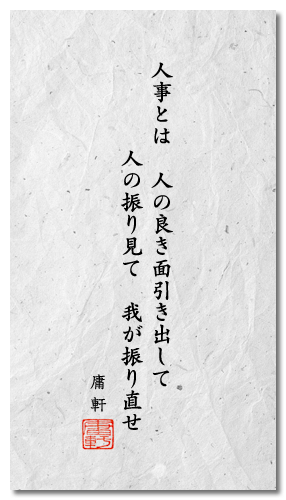 人事とは 人の良き面引き出して
人の振り見て 我が振り直せ
庸軒